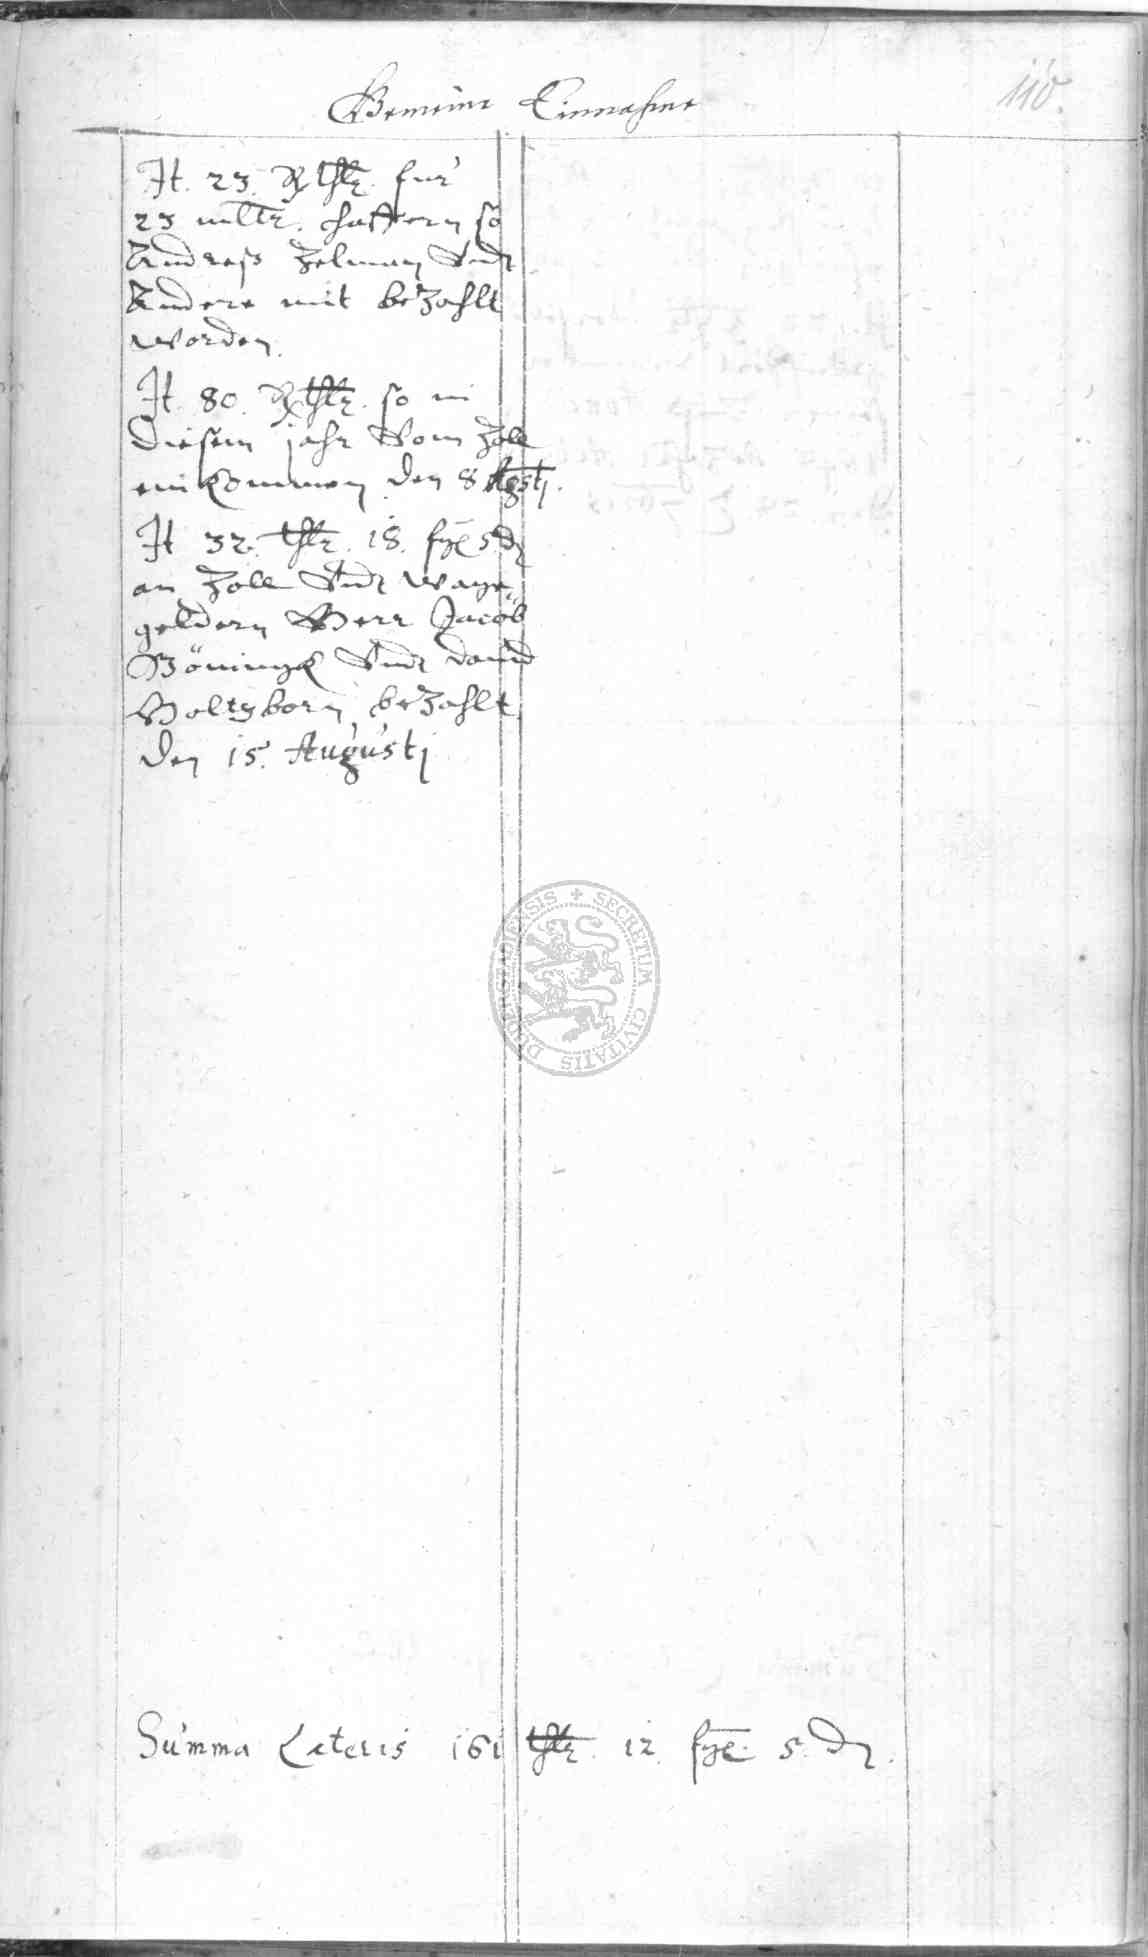 Gemeine Einnahme
110.
It. 23. R thlr. fur
23 mltr. haffern so
Andreß Helman Vndt
Andere mit bezahlt
worden.
It. 80. R thlr. so in
diesem jahr Vom Zoll
einkommen den 8 Agstj.
It 32. thlr. 18. fge 5 d
an Zoll Vndt wage
geldern Herr Jacob
Böningk Vndt dauid
Holtzborn bezahlt
den 15. Augustj
SECRETUM CIVITATIS DUDERSTADIENSIS
Summa Lateris 161 thlr. 12. fge. 5. d.